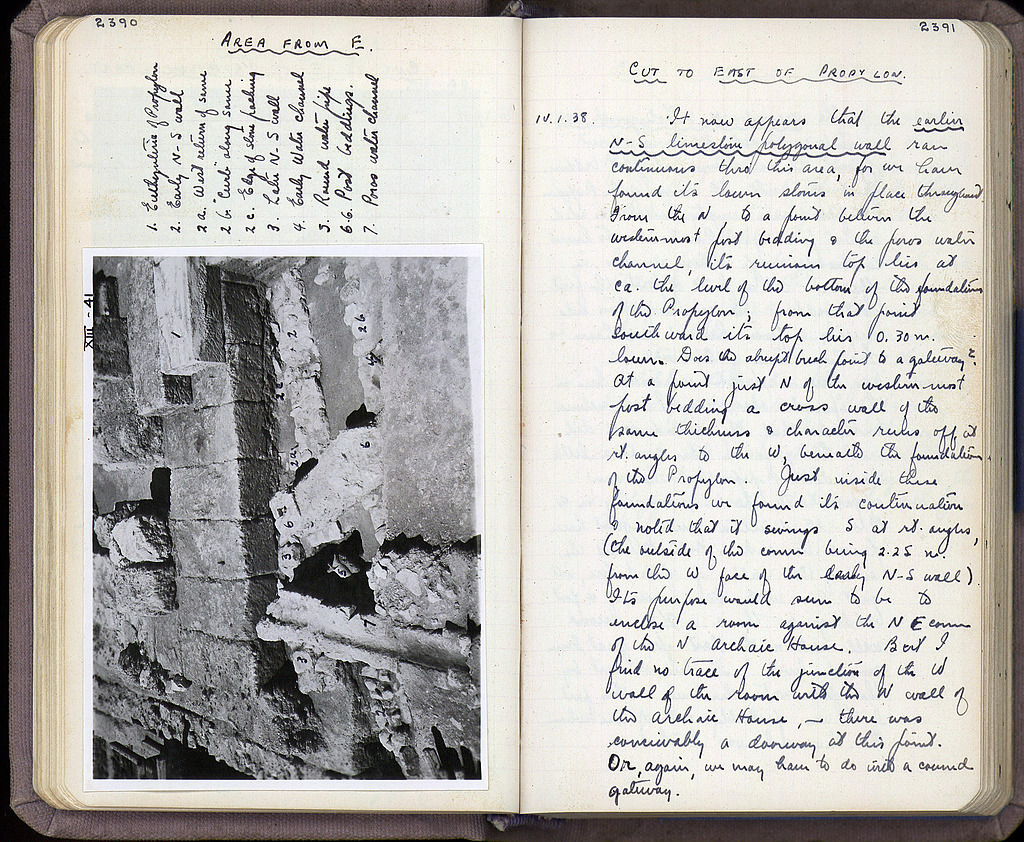 2390
AREA FROM E.
1. Euthynteria of Propylon
2. Early N-S wall
2a. West return of same
2b. "Curb" along same
2c. Edge of stone packing
3. Late N-S wall
4. Early Water channel
5. Round water pipe
6-6. Post beddings.
7. Poros water channel
XIII - 41
1
2
2b
2c
4
2a
6
6
3
5
7
3
2391
CUT TO EAST OF PROPYLON.
IV.1.38. It now appears that the earlier
N-S limestone polygonal wall ran
continuous thro this area, for we have
found its lower stones in place throughout.
From the N, to a point between the
westernmost post bedding & the poros water
channel, its remains top lies at
ca. the level of the bottom of the foundations
of the Propylon; from that point
southward its top lies 0.30 m.
lower. Does the abrupt break point to a gateway?
At a point just N of the western-most
post bedding a cross wall of the
same thickness & character runs off at
rt. angles to the W, beneath the foundations
of the Propylon. Just inside these
foundations we found its continuation
& noted that it swings S at rt. angles,
(the outside of the corner being 2.25 m.
from the W face of the early N-S wall).
Its purpose would seem to be to
enclose a room against the NE corner
of the N Archaic House. But I
find no trace of the junction of the W
wall of the room with the N wall of
the Archaic House, — there was
conceivably a doorway at this point.
Or, again, we may have to do with a covered
gateway.